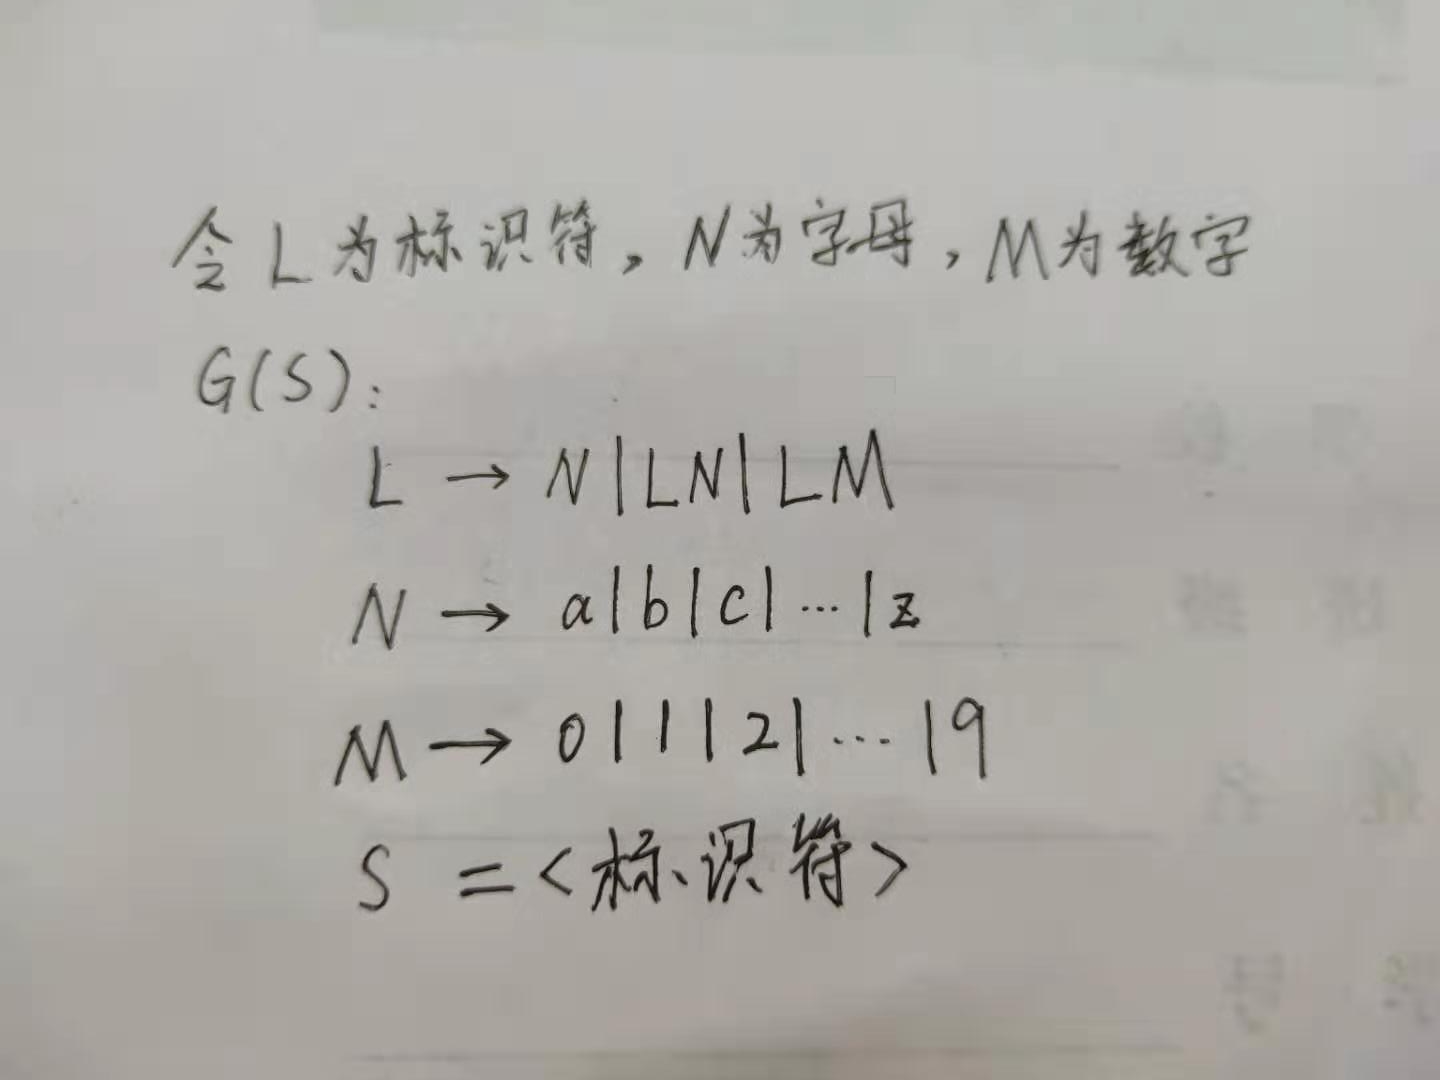 令L为标识符，N为字母，M为数字
G(S):
L → N|LN|LM
N → a|b|c|…|z
M → 0|1|2|…|9
S = <标识符>